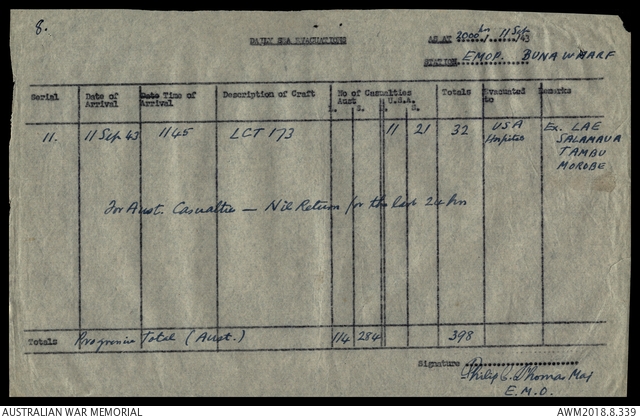 8.
DAILY SEA EVACUATIONS
AS AT 2000 hr 11 Sept 43
STATION EMOP. BUNA WHARF
Serial Date of Arrival Date Time of Arrival Description of Craft No of Casualties Aust U.S.A. L. S. L. S. Totals Evacuated to Remarks
11. 11 Sep 43 1145 LCT 173 11 21 32 USA Hospital Ex. LAE
SALAMAUA
TAMBU
MOROBE
For Aust. Casualties — Nil Return for the last 24 hrs
Totals Progressive Total (Aust.) 114 284 398
Signature
Philip C. Thomas Maj
E.M.O.
AUSTRALIAN WAR MEMORIAL AWM2018.8.339